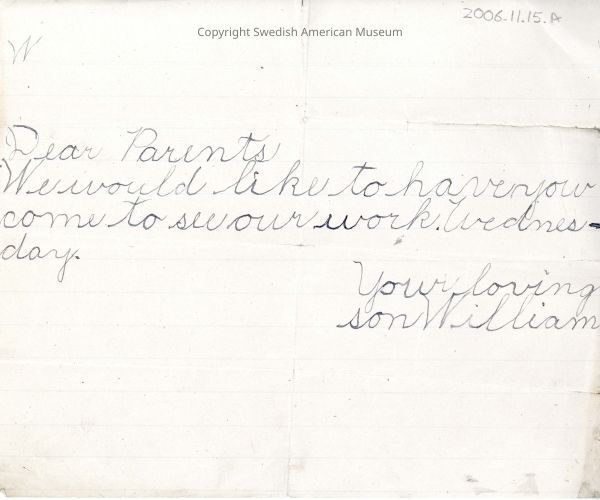 2006.11.15.A
Copyright Swedish American Museum
W
Dear Parents
We would like to have you
come to see our work. Wednes-
day.
Your loving
son William